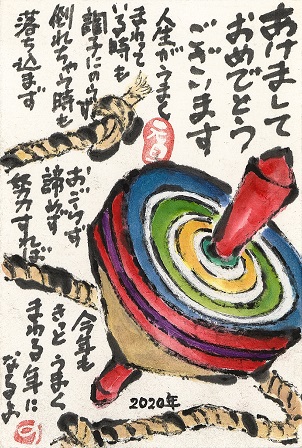 あけまして
おめでとう
ございます
人生がうまく
まわって
いる時も
調子にのらず
倒れちゃう時も
落ち込まず
おごらず
諦めず
努力すれば
今年も
きっとうまく
まわる年に
なるよ
2020年